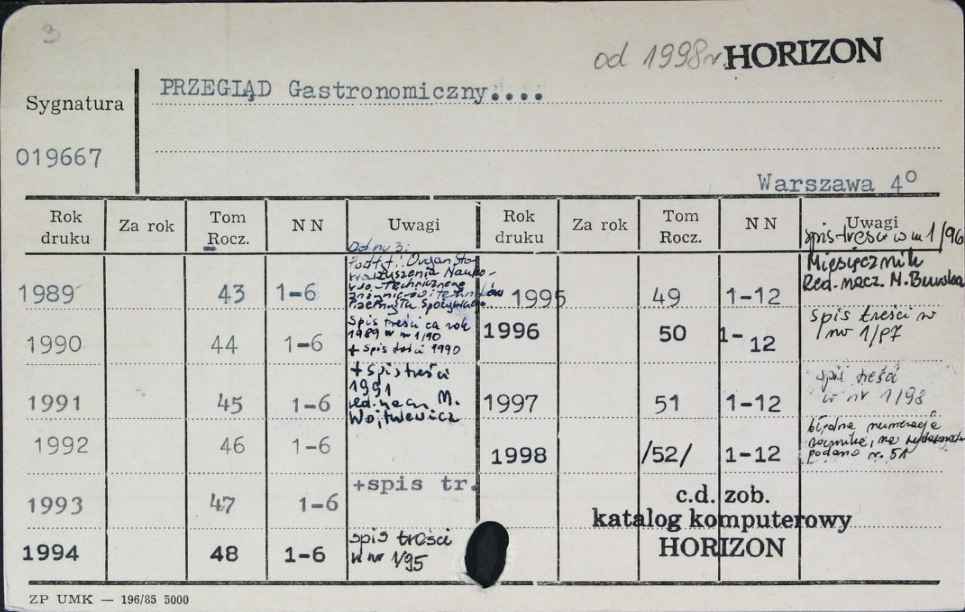 3
od 1998r. HORIZON
Sygnatura
PRZEGLĄD Gastronomiczny....
019667
Warszawa 4°
Rok druku Za rok Tom Rocz. N N Uwagi Rok druku Za rok Tom Rocz. N N Uwagi
1989 43 1-6
Od nr 3:
Podtyt.: Organ Sto-
warzyszenia Nauko-
wo-Technicznego
Inżynierów i Techników
Przemysłu Spożywczego
1990 44 1-6
Spis treści za rok
1989 w nr 1/90
+ spis treści 1990
1991 45 1-6
+ spis treści
1991
red. nacz. M.
1992 46 1-6
1993 47 1-6 +spis tr.
1994 48 1-6
spis treści
w nr 1/95
1995 49 1-12
spis treści w nr 1/96
Miesięcznik
Red. nacz. M.
1996 50 1-12
spis treści w
nr 1/97
1997 51 1-12
spis treści
w nr 1/98
1998 /52/ 1-12
błędna numeracja
rocznika, na
podano r. 51
c.d. zob.
katalog komputerowy
HORIZON
ZP UMK — 196/85 5000